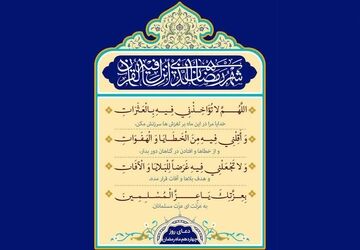 شهر رمضان الذی انزل فیه القرآن
اَللّهُمَّ لا تُؤاخِذْنی فیهِ بِالْعَثَراتِ
خدایا مرا در این ماه بر لغزش ها سرزنش مکن،
وَ اَقِلْنی فیهِ مِنَ الْخَطایا وَ الْهَفَواتِ
و از خطاها و افتادن در گناهان دور بدار،
وَ لا تَجْعَلْنی فیهِ غَرَضاً لِلْبَلایا وَ الْآفاتِ
و هدف بلاها و آفات قرار مده،
بِعِزَّتِکَ یا عِزَّ الْمُسْلِمینَ
به عزتت ای عزت مسلمانان.
دعـای روز
چهاردهم ماه رمضان